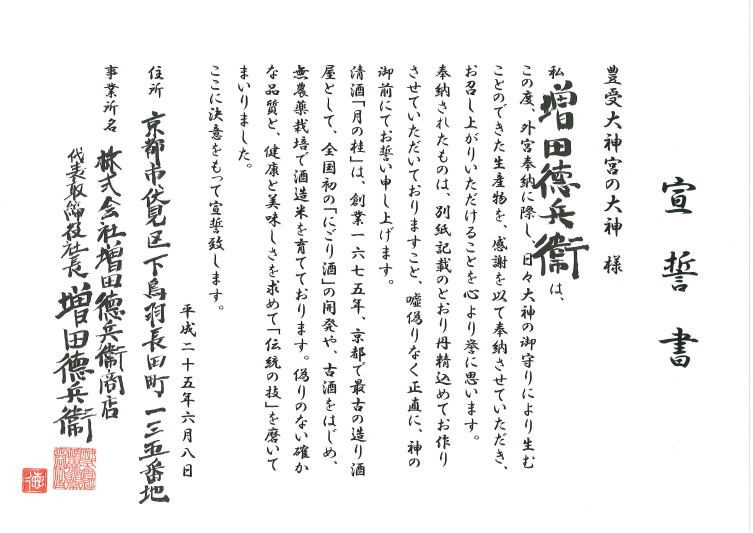 宣誓書
豊受大神宮の大神 様
私 増田德兵衞は、
この度、外宮奉納に際し、日々大神の御守りにより生む
ことのできた生産物を、感謝を以て奉納させていただき、
お召し上がりいただけることを心より誉に思います。
奉納されたものは、別紙記載のとおり丹精込めてお作り
させていただいておりますこと、嘘偽りなく正直に、神の
御前にてお誓い申し上げます。
清酒「月の桂」は、創業一六七五年、京都で最古の造り酒
屋として、全国初の「にごり酒」の開発や、古酒をはじめ、
無農薬栽培で酒造米を育てております。偽りのない確か
な品質と、健康と美味しさを求めて「伝統の技」を磨いて
まいりました。
ここに決意をもって宣誓致します。
平成二十五年六月八日
住所 京都市伏見区下鳥羽長田町一三五番地
事業所名 株式会社増田德兵衞商店
代表取締役社長 増田德兵衞